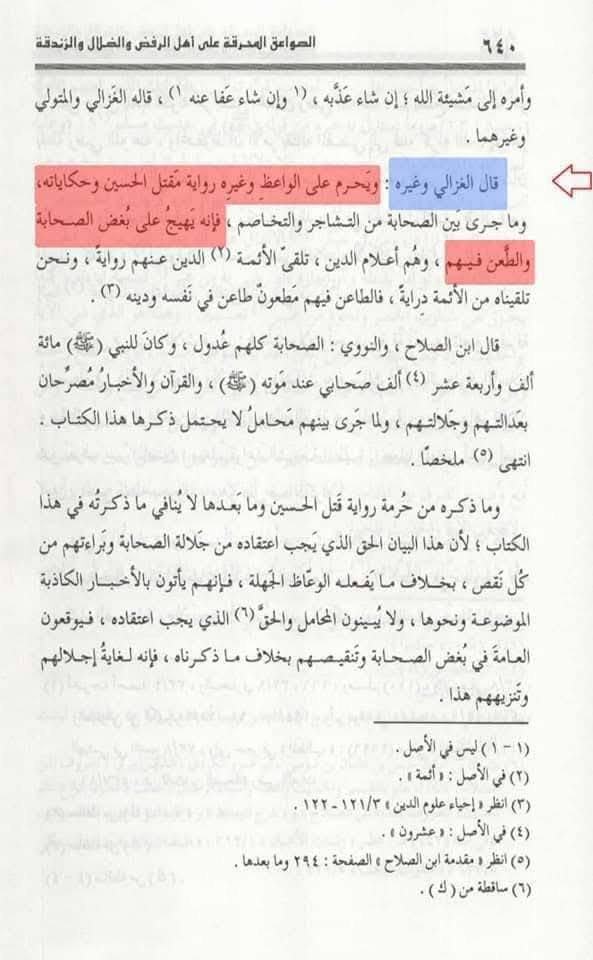 ٦٤٠ الصواعق المحرقة على أهل الرفض والضلال والزندقة
وأمره إلى مَشيئة الله ؛ إن شاء عَذَّبه ، (١ وإن شاء عَفا عنه ١) ، قاله الغَزالي والمتولي
وغيرهما .
قال الغزالي وغيره : ويَحرم على الواعظِ وغيرِه رواية مَقتل الحسين وحكاياته،
وما جرى بَين الصحابة من التـشاجر والتخاصم ، فإنه يَهيجُ على بُغض الصـحابة
والطَّعن فـيـهم ، وهُم أعلام الدين ، تلقىٰ الأئمـة (٢) الدين عنـهم روايةً ، ونـحن
تلقيناه من الأئمة دِرايةً ، فالطاعن فيهم مَطعونٌ طاعن في نَفسه ودينه (٣) .
قال ابن الصلاح ، والنووي : الصحابة كلهم عُدول ، وكانَ للنبي (ﷺ) مائة
ألف وأربعة عشر (٤) ألف صَحابي عند مَوته (ﷺ) ، والقرآن والأخبارُ مُصرِّحان
بعَدالتـهم وجَلالتـهم ، ولما جَرى بينهم مَحاملُ لا يحتمل ذكرها هذا الكتاب .
انتهى (٥) ملخصًا .
وما ذكره من حُرمة رواية قَتل الحسين وما بعدها لا يُنافي ما ذكرتُه في هذا
الكتاب ؛ لأن هذا البيان الحق الذي يَجب اعتقاده من جَلالة الصحابة وبَراءتهم من
كُل نَقص ، بـخلاف ما يَفـعلـه الوعّاظ الجَهلة ، فـإنـهم يأتون بالأخبـار الكاذبة
الموضوعة ونحوها ، ولا يُبينون المحامل والحقَّ (٦) الذي يجب اعتقاده ، فيوقعون
العامةَ في بُغض الصـحابة وتَنقيـصـهم بخلاف ما ذكـرناه ، فإنه لغايةُ إجلالهم
وتَنزيههم هذا .
(١ - ١) ليس في الأصل .
(٢) في الأصل : « أئمة » .
(٣) انظر « إحياء علوم الدين » ٣/ ١٢١ - ١٢٢ .
(٤) في الأصل : « عشرون » .
(٥) انظر « مقدمة ابن الصلاح » الصفحة : ٢٩٤ وما بعدها .
(٦) ساقطة من (ك) .